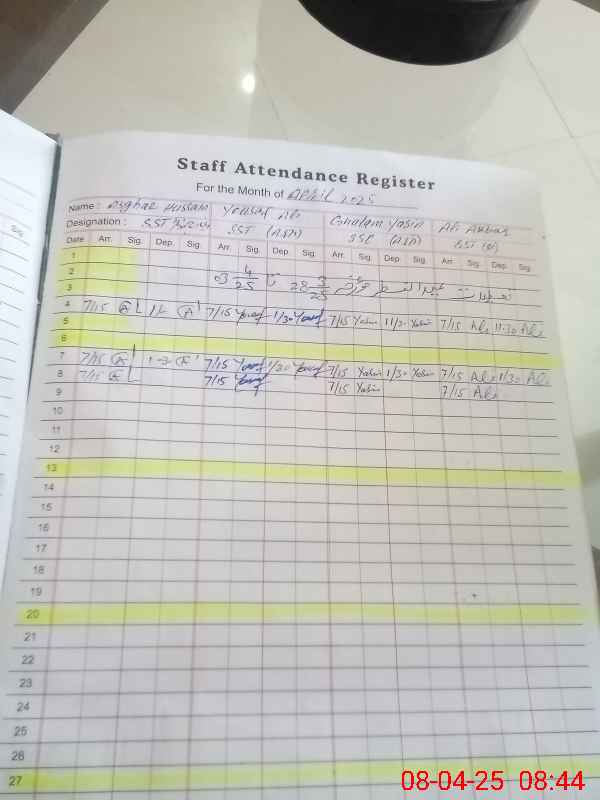 Staff Attendance Register
For the Month of April 2025
Name : Asghar Hussain Yousaf Ali Ghulam Yasin Ali Akbar
Designation : SST SST (ASM)
Date Arr. Sig. Dep. Sig. Arr. Sig. Dep. Sig. Arr. Sig. Dep. Sig. Arr. Sig. Dep. Sig.
1
2
3
4 7/15 7/15 Yousaf 1/30 Yousaf 7/15 Yasin Yasin 7/15 Ali 11:30 Ali
5
6
7 7/15 7/15 Yousaf 1/30 Yousaf 7/15 Yasin 1/30 Yasin 7/15 Ali 1/30 Ali
8 7/15 7/15 Yousaf 7/15 Yasin 7/15 Ali
9
10
11
12
13
14
15
16
17
18
19
20
21
22
23
24
25
26
27
08-04-25 08:44